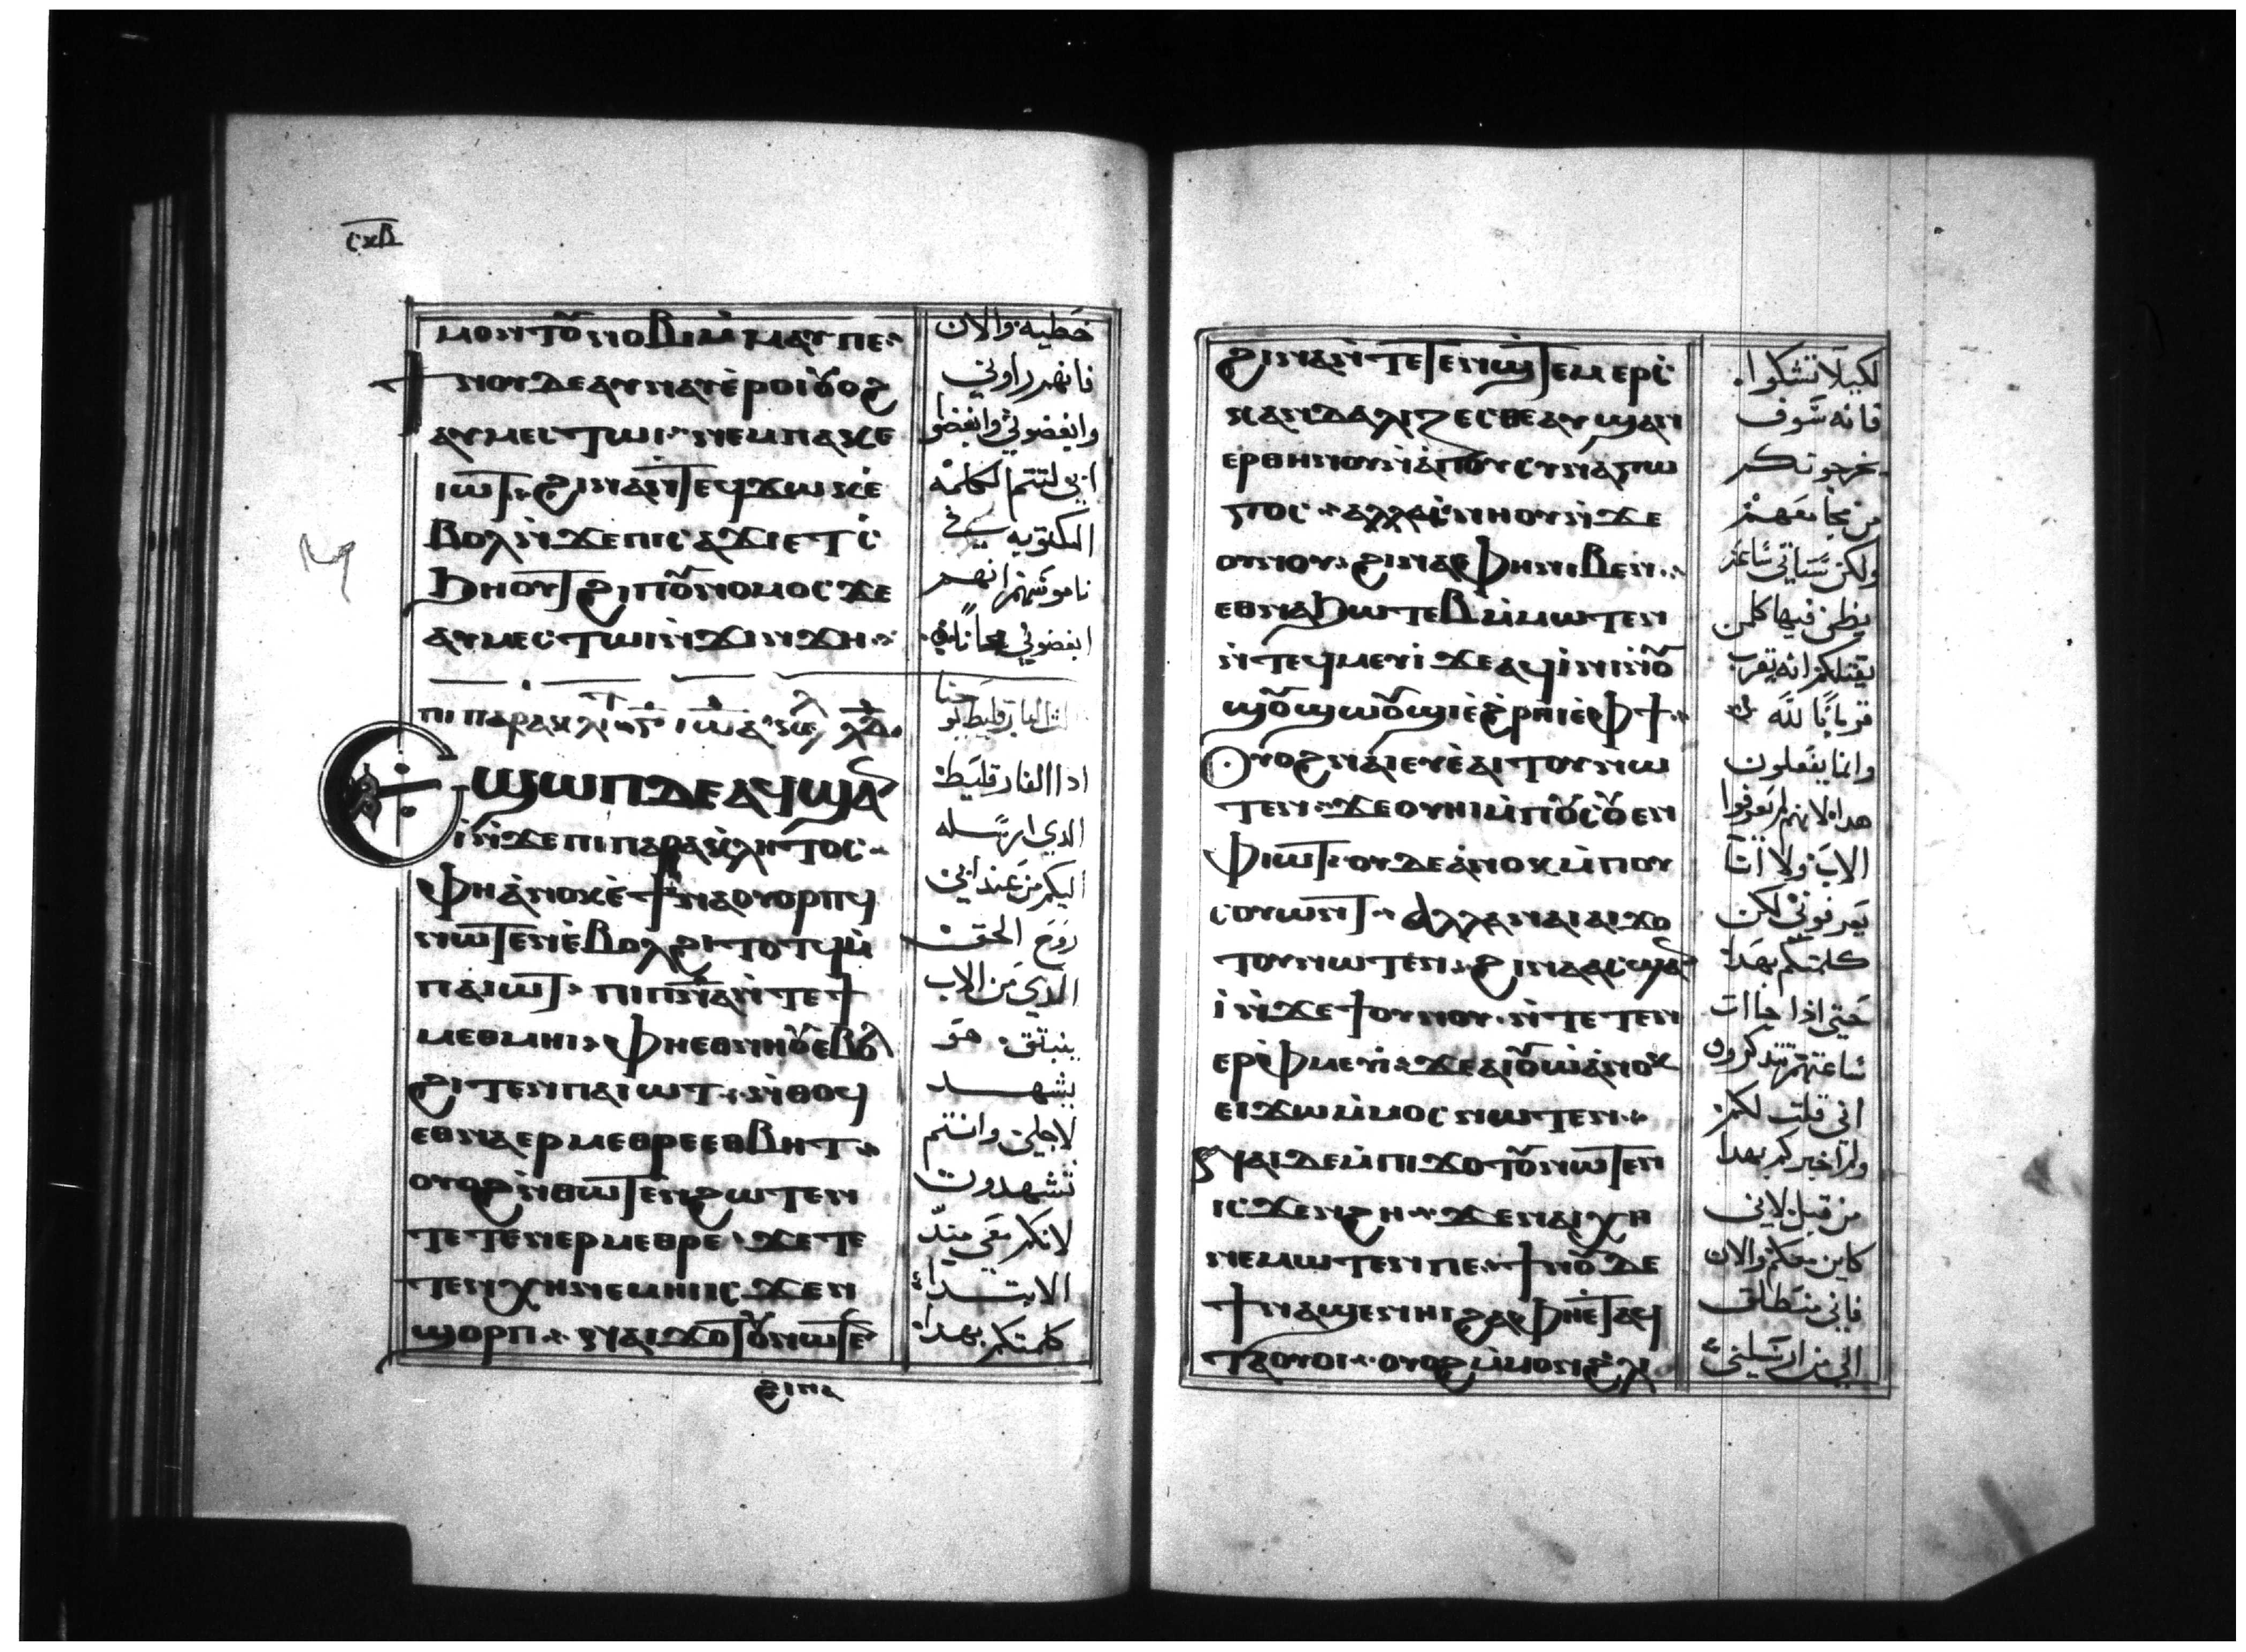 ⲥⲕⲃ
ⲙⲟⲛⲧⲟⲩ ⲛⲟⲃⲓ ⲙ̇ⲙⲁⲩ ⲡⲉ
ϯⲛⲟⲩ ⲇⲉ ⲁⲩⲛⲁⲩ ⲉ̇ⲣⲟⲓ ⲟⲩⲟϩ
ⲁⲩⲙⲉⲥⲧⲱⲓ ⲛⲉⲙ ⲡⲁⲕⲉ
ⲓⲱⲧ ϩⲓⲛⲁ ⲛ̇ⲧⲉϥϫⲱⲕ ⲉ̇
ⲃⲟⲗ ⲛ̇ϫⲉ ⲡⲓⲥⲁϫⲓ ⲉⲧⲥ̇
ϧⲏⲟⲩⲧ ϩⲓ ⲡⲟⲩⲛⲟⲙⲟⲥ ϫⲉ
ⲁⲩⲙⲉⲥⲧⲱⲓ ⲛ̇ϫⲓⲛϫⲏ
ⲉϣⲱⲡ ⲇⲉ ⲁϥϣⲁ
ⲓ̇ ⲛ̇ϫⲉ ⲡⲓⲡⲁⲣⲁⲕⲗⲏⲧⲟⲥ
ⲫⲏ ⲁ̇ⲛⲟⲕ ⲉ̇ϯⲛⲁⲟⲩⲟⲣⲡϥ
ⲛⲱⲧⲉⲛ ⲉ̇ⲃⲟⲗ ϩⲓⲧⲟⲧϥ ⲙ̇
ⲡⲁⲓⲱⲧ ⲡⲓⲡⲛ̅ⲁ̅ ⲛ̇ⲧⲉ ϯ
ⲙⲉⲑⲙⲏⲓ ⲫⲏⲉⲑⲛⲏⲟⲩ ⲉⲃⲟⲗ
ϩⲓⲧⲉⲛ ⲡⲁⲓⲱⲧ ⲛ̇ⲑⲟϥ
ⲉⲑⲛⲁⲉⲣⲙⲉⲑⲣⲉ ⲉⲑⲃⲏⲧ
ⲟⲩⲟϩ ⲛ̇ⲑⲱⲧⲉⲛ ϩⲱⲧⲉⲛ
ⲧⲉⲧⲉⲛⲉⲣⲙⲉⲑⲣⲉ ϫⲉ ⲧⲉ
ⲧⲉⲛⲭⲏ ⲛⲉⲙⲏⲓ ⲓⲥϫⲉⲛ
ϣⲟⲣⲡ ϩⲛⲁⲓ ϫⲟⲧⲟⲩ ⲛⲱⲧⲉⲛ
ϩⲓⲛⲁ
خطيه والان
فانهم راوني
وابغضوني وابغضوا
ابي لتتم الكلمة
المكتوبه في
ناموسهم انهم
ابغضوني مجانا
اذا الفارقليط
الذي ارسله
اليكم من عند ابي
روح الحق
الذي من الاب
ينبثق هو
يشهد
لاجلي وانتم
تشهدون
لانكم معي منذ
الابتداء
كلمتكم بهذا
ϩⲓⲛⲁ ⲛ̇ⲧⲉⲧⲉⲛϣ̇ⲧⲉⲙⲉⲣⲥ̇
ⲕⲁⲛⲇⲁⲗⲓⲍⲉⲥⲑⲉ ⲁⲩϣⲁⲛ
ⲉⲣⲑⲏⲛⲟⲩ ⲛ̇ⲁⲡⲟⲩⲥⲩⲛⲁⲅⲱ
ⲅⲟⲥ ⲁⲗⲗⲁ ⲥ̇ⲛⲏⲟⲩ ⲛ̇ϫⲉ
ⲟⲩⲛⲟⲩ ϩⲓⲛⲁ ⲫⲏ ⲛⲓⲃⲉⲛ
ⲉⲑⲛⲁϧⲱⲧⲉⲃ ⲙ̇ⲙⲱⲧⲉⲛ
ⲛ̇ⲧⲉϥⲙⲉⲩⲓ ϫⲉ ⲁϥⲓ̇ⲛⲓ ⲛ̇ⲟⲩ
ϣⲟⲩϣⲱⲟⲩϣⲓ ⲉ̇ϩⲣⲏⲓ ⲉ̇ⲫϯ
ⲟⲩⲟϩ ⲛⲁⲓ ⲉⲩⲉ̇ⲁⲓⲧⲟⲩ ⲛⲱ
ⲧⲉⲛ ϫⲉ ⲟⲩⲏⲓ ⲙ̇ⲡⲟⲩⲥⲟⲩⲉⲛ
ⲫⲓⲱⲧ ⲟⲩⲇⲉ ⲁ̇ⲛⲟⲕ ⲙ̇ⲡⲟⲩ
ⲥⲟⲩⲱⲛⲧ ⲁⲗⲗⲁ ⲛⲁⲓ ⲁⲓϫⲟ
ⲧⲟⲩ ⲛⲱⲧⲉⲛ ϩⲓⲛⲁ ⲁⲥϣⲁⲛ
ⲓ̇ ⲛ̇ϫⲉ ϯⲟⲩⲛⲟⲩ ⲛ̇ⲧⲉⲧⲉⲛ
ⲉⲣⲫ̇ⲙⲉⲩⲓ ϫⲉ ⲁⲓⲟⲩⲱ ⲁ̇ⲛⲟⲕ
ⲉⲓϫⲱ ⲙ̇ⲙⲟⲥ ⲛⲱⲧⲉⲛ
ⲛⲁⲓ ⲇⲉ ⲙ̇ⲡⲓϫⲟⲧⲟⲩ ⲛⲱⲧⲉⲛ
ⲓⲥϫⲉⲛ ϩⲏ ϫⲉ ⲛⲁⲓⲭⲏ
ⲛⲉⲙⲱⲧⲉⲛ ⲡⲉ ϯⲛⲟⲩ ⲇⲉ
ϯⲛⲁϣⲉⲛⲏⲓ ϩⲁ ⲫⲏⲉⲧⲁϥ
ⲧⲁⲟⲩⲟⲓ ⲟⲩⲟϩ ⲙ̇ⲙⲟⲛ ϩⲗ
لكيلا تشكوا
فانه سوف
يخرجونكم
من مجامعهم
ولكن ستاتي ساعه
يظن فيها كلمن
يقتلكم انه يقرب
قربانا لله
وانما يفعلون
هذا لانهم لم يعرفوا
الاب ولا انا
يعرفوني لكن
كلمتكم بهذا
حتى اذا جاات
ساعتهم تتذكرون
اني قلت لكم
ولم اخبركم بهذا
من قبل لاني
كاين معكم والان
فاني منطلق
الي من ارسلني